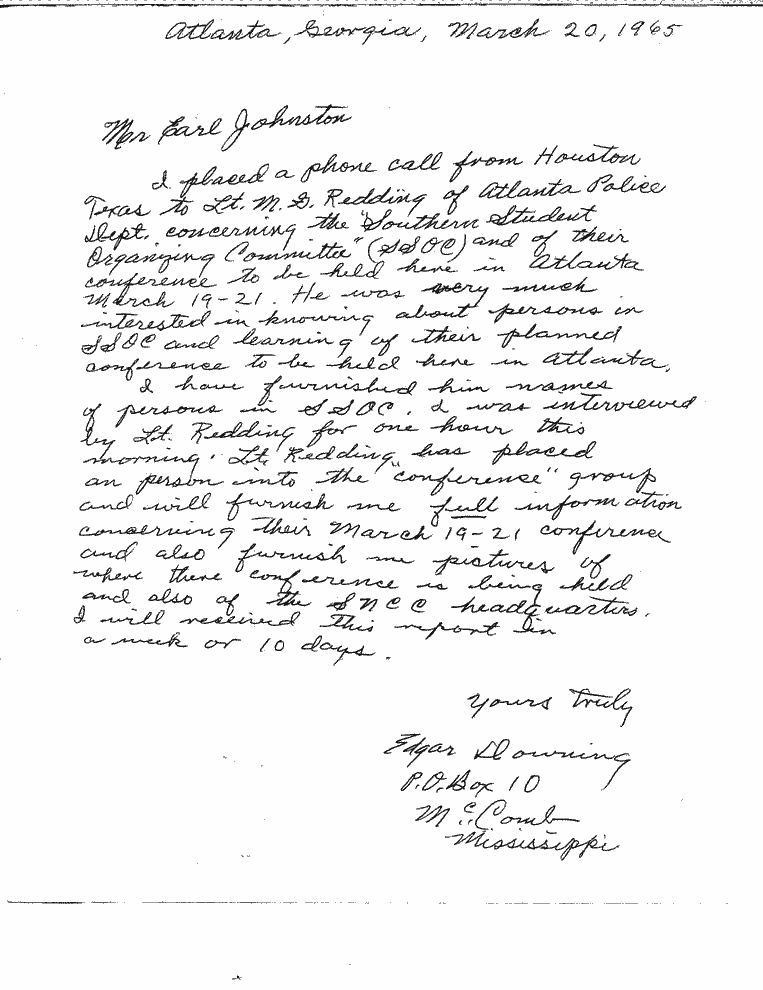 Atlanta, Georgia, March 20, 1965
Mr Earl Johnston
I placed a phone call from Houston
Texas to Lt. M. G. Redding of Atlanta Police
Dept. concerning the "Southern Student
Organizing Committee" (SSOC) and of their
conference to be held here in Atlanta
March 19-21. He was very much
interested in knowing about persons in
SSOC and learning of their planned
conference to be held here in Atlanta.
I have furnished him names
of persons in SSOC. I was interviewed
by Lt. Redding for one hour this
morning. Lt. Redding has placed
an person into the "conference" group
and will furnish me full information
concerning their March 19-21 conference
and also furnish me pictures of
where there conference is being held
and also of the SNCC headquarters.
I will received this report in
a week or 10 days.
Yours Truly
Edgar Downing
P.O. Box 10
McComb
Mississippi